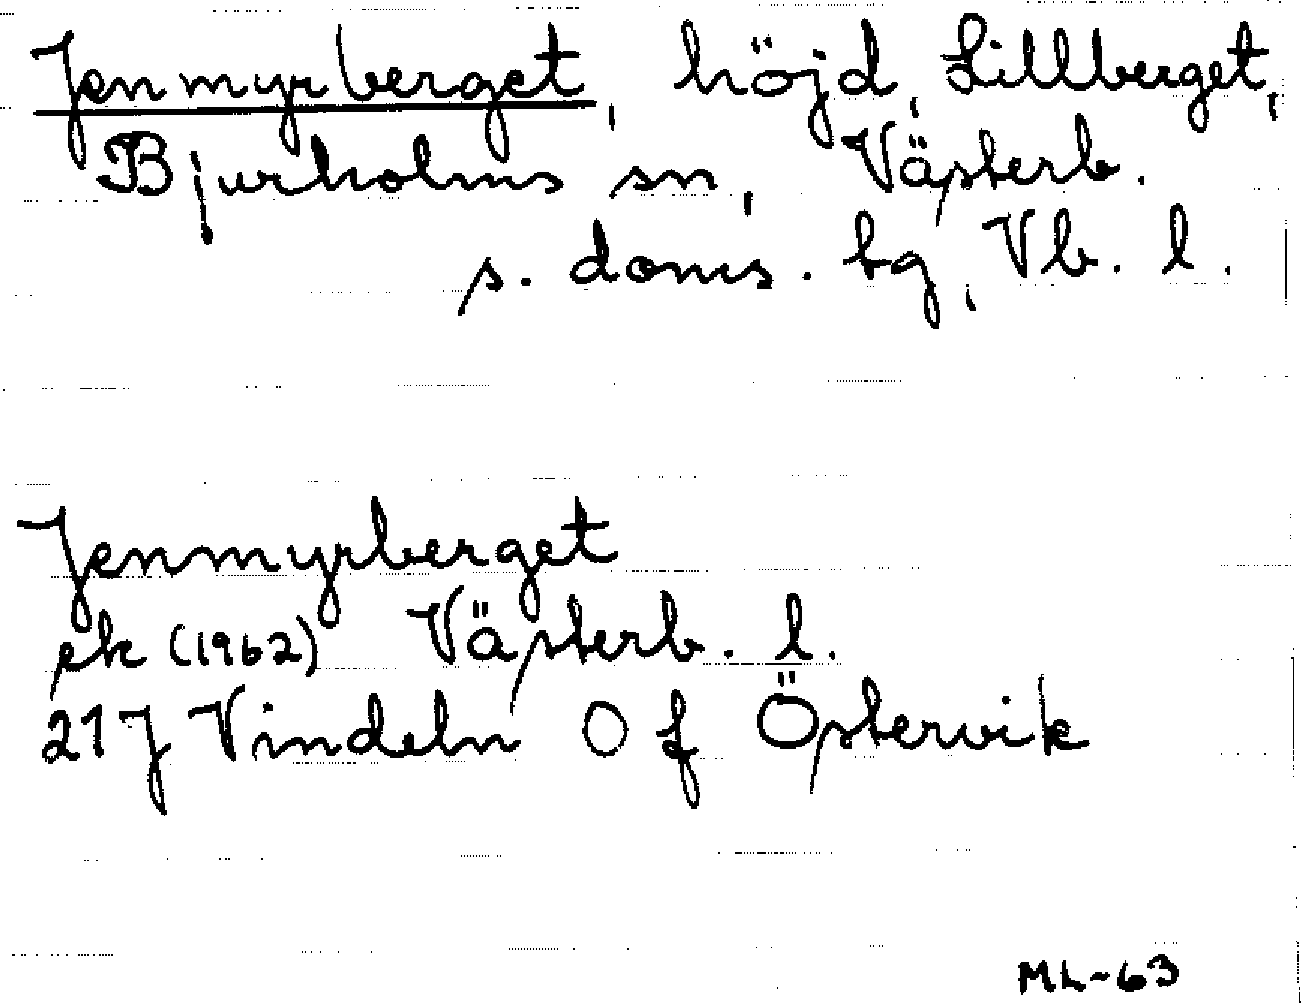 Jenmyrberget, höjd, Lillberget,
Bjurholms sn, Västerb.
s. doms. bg, Vb. l.
Jenmyrberget
ek (1962) Västerb. l.
21J Vindeln O f Östervik
ML-63